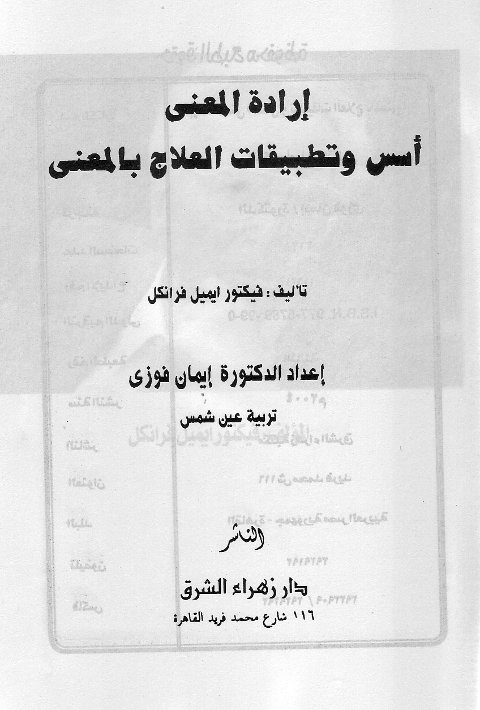 إرادة المعنى
أسس وتطبيقات العلاج بالمعنى
تأليف : فيكتور ايميل فرانكل
إعداد الدكتورة إيمان فوزى
تربية عين شمس
الناشر
دار زهراء الشرق
١١٦ شارع محمد فريد القاهرة